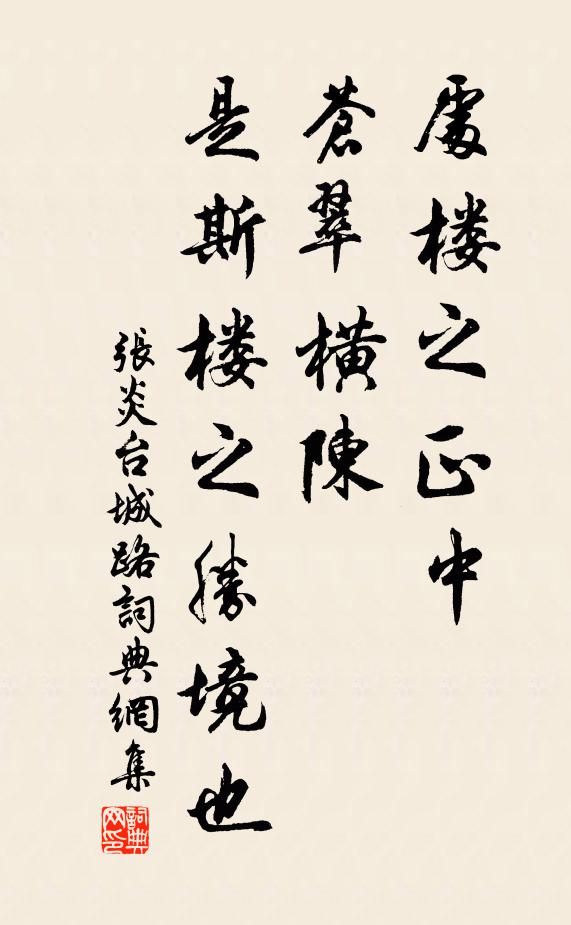 處楼之正中
蒼翠横陳
是斯楼之勝境也
張炎台城路詞典網集
詞典
网印